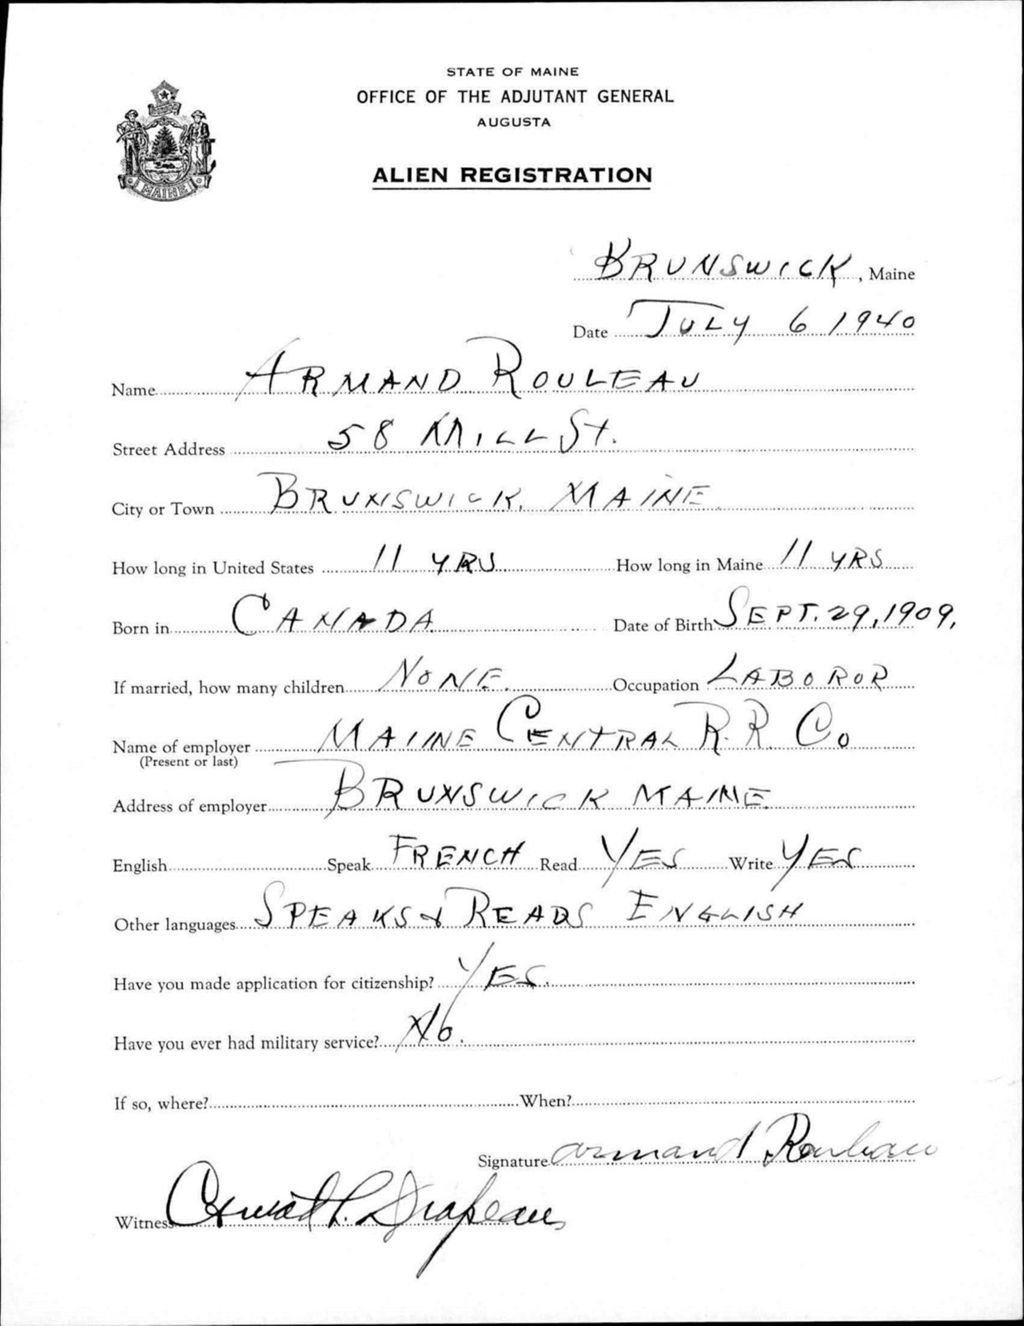 STATE OF MAINE
OFFICE OF THE ADJUTANT GENERAL
AUGUSTA
ALIEN REGISTRATION
MAINE
BRUNSWICK, Maine
Date JULY 6 1940
Name ARMAND ROULEAU
Street Address 58 MILL St.
City or Town BRUNSWICK, MAINE
How long in United States 11 YRS How long in Maine 11 YRS
Born in CANADA Date of Birth SEPT. 29, 1909,
If married, how many children NONE. Occupation LABOROR
Name of employer MAINE CENTRAL R.R. Co
(Present or last)
Address of employer BRUNSWICK MAINE
English Speak FRENCH Read YES Write YES
Other languages SPEAKS & READS ENGLISH
Have you made application for citizenship? YES.
Have you ever had military service? No.
If so, where? When?
Signature Armand Rouleau
Witness L. Drapeau